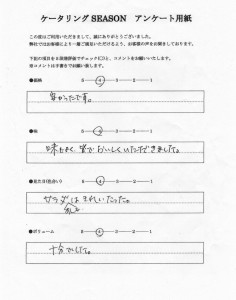 ケータリング SEASON　アンケート用紙
この度はご利用いただきまして、誠にありがとうございました。
弊社ではお客様により一層ご満足いただけるよう、お客様の声をお聞きしております。
下記の項目を5段階評価でチェック(○)と、コメントをお願いいたします。
※コメントは手書きでお願い致します。
●価格　5―4―3―2―1
安かったです。
●味　5―4―3―2―1
味もよく、皆でおいしくいただきました。
●見た目(色合い)　5―4―3―2―1
サラダはきれいだった。
●ボリューム　5―4―3―2―1
十分でした。